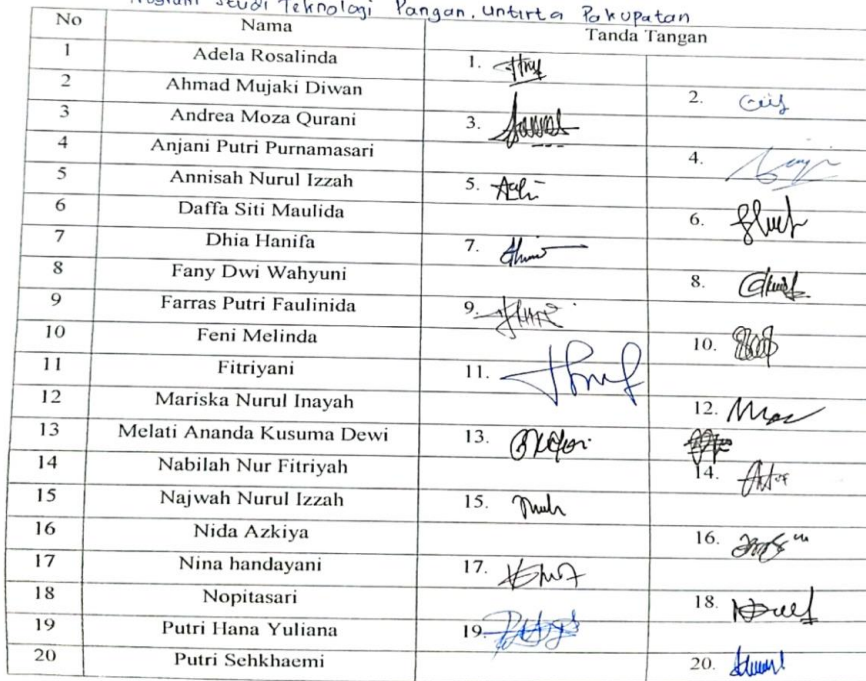 Program Studi Teknologi Pangan, Untirta Pakupatan
No Nama Tanda Tangan
1 Adela Rosalinda 1.
2 Ahmad Mujaki Diwan 2.
3 Andrea Moza Qurani 3.
4 Anjani Putri Purnamasari 4.
5 Annisah Nurul Izzah 5.
6 Daffa Siti Maulida 6.
7 Dhia Hanifa 7.
8 Fany Dwi Wahyuni 8.
9 Farras Putri Faulinida 9.
10 Feni Melinda 10.
11 Fitriyani 11.
12 Mariska Nurul Inayah 12.
13 Melati Ananda Kusuma Dewi 13.
14 Nabilah Nur Fitriyah 14.
15 Najwah Nurul Izzah 15.
16 Nida Azkiya 16.
17 Nina handayani 17.
18 Nopitasari 18.
19 Putri Hana Yuliana 19.
20 Putri Sehkhaemi 20.